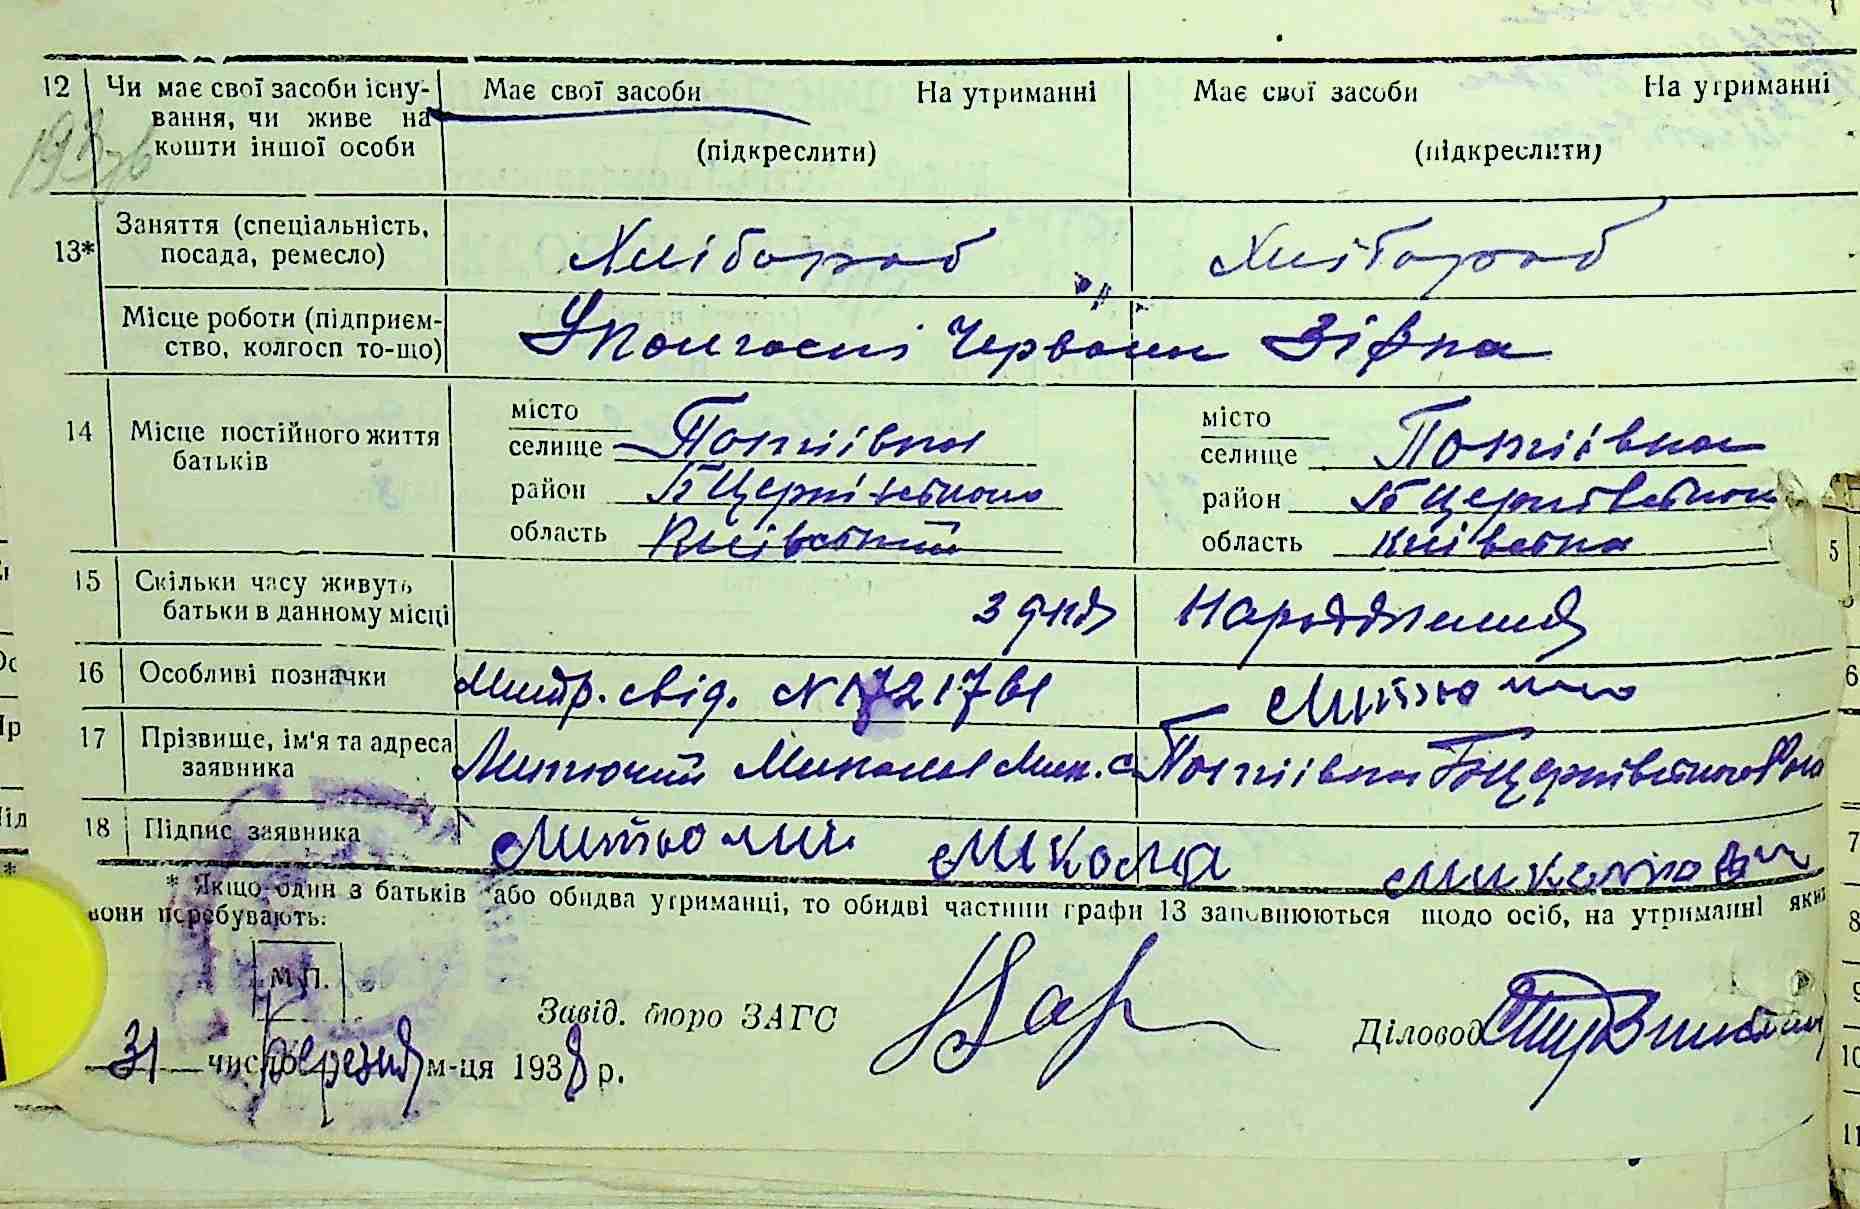 12 Чи має свої засоби існу- Має свої засоби На утриманні Має свої засоби На утриманні
вання, чи живе на
кошти іншої особи (підкреслити) (підкреслити)
13* Заняття (спеціальність, Хлібороб Хлібороб
посада, ремесло)
Місце роботи (підприєм- У колгоспі Червона Зірка
ство, колгосп то-що)
14 Місце постійного життя місто місто
батьків селище Потіївка селище Потіївка
район Б Церківського район Б Церківського
область Київської область Київська
15 Скільки часу живуть з дня народження
батьки в данному місці
16 Особливі позначки свід. N 1721761
17 Прізвище, ім'я та адреса Микола Мик. с. Потіївка Б Церківського р-на
заявника
18 Підпис заявника Микола Миколайович
* Якщо один з батьків або обидва утриманці, то обидві частини графи 13 заповнюються щодо осіб, на утриманні яких
вони перебувають.
М.П.
Завід. бюро ЗАГС Діловод
31 числа березня м-ця 1938 р.